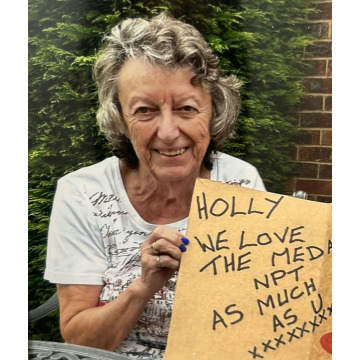 HOLLY
WE LOVE
THE MEDA
NPT
AS MUCH
AS U
xxxxxxxx